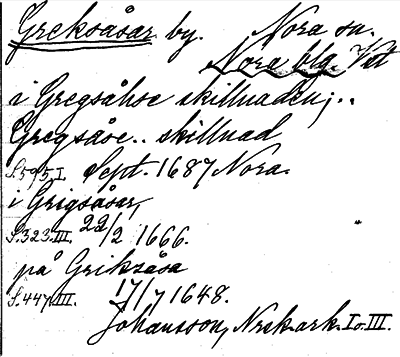 Greksåsar by. Nora sn.
Nora blg. Vstm
i Gregsåhse skillnaden;..
Gregsåse.. skillnad
S.595.I. Sept. 1687 Nora.
i Grigsåsar,
S.323.III. 22/2 1666.
på Grikzåsa
S.447.III. 17/7 1648.
Johansson, Nrsk.ark. I o. III.